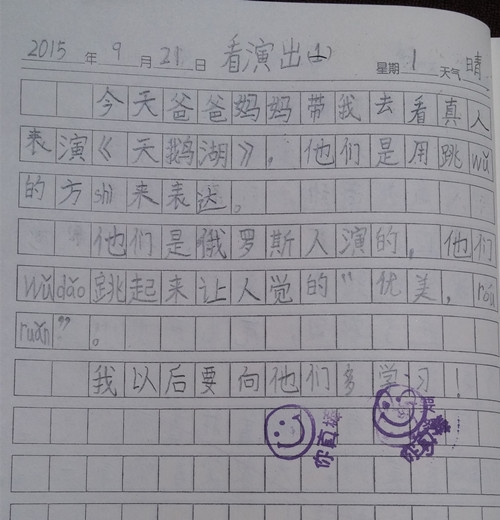 2015年9月21日 看演出(1) 星期1 天气晴
今天爸爸妈妈带我去看真人
表演《天鹅湖》。他们是用跳wǔ
的方shì来表达。
他们是俄罗斯人演的,他们
wǔdǎo跳起来让人觉的"优美,róu
ruǎn"。
我以后要向他们多学习!
你真棒
你真棒